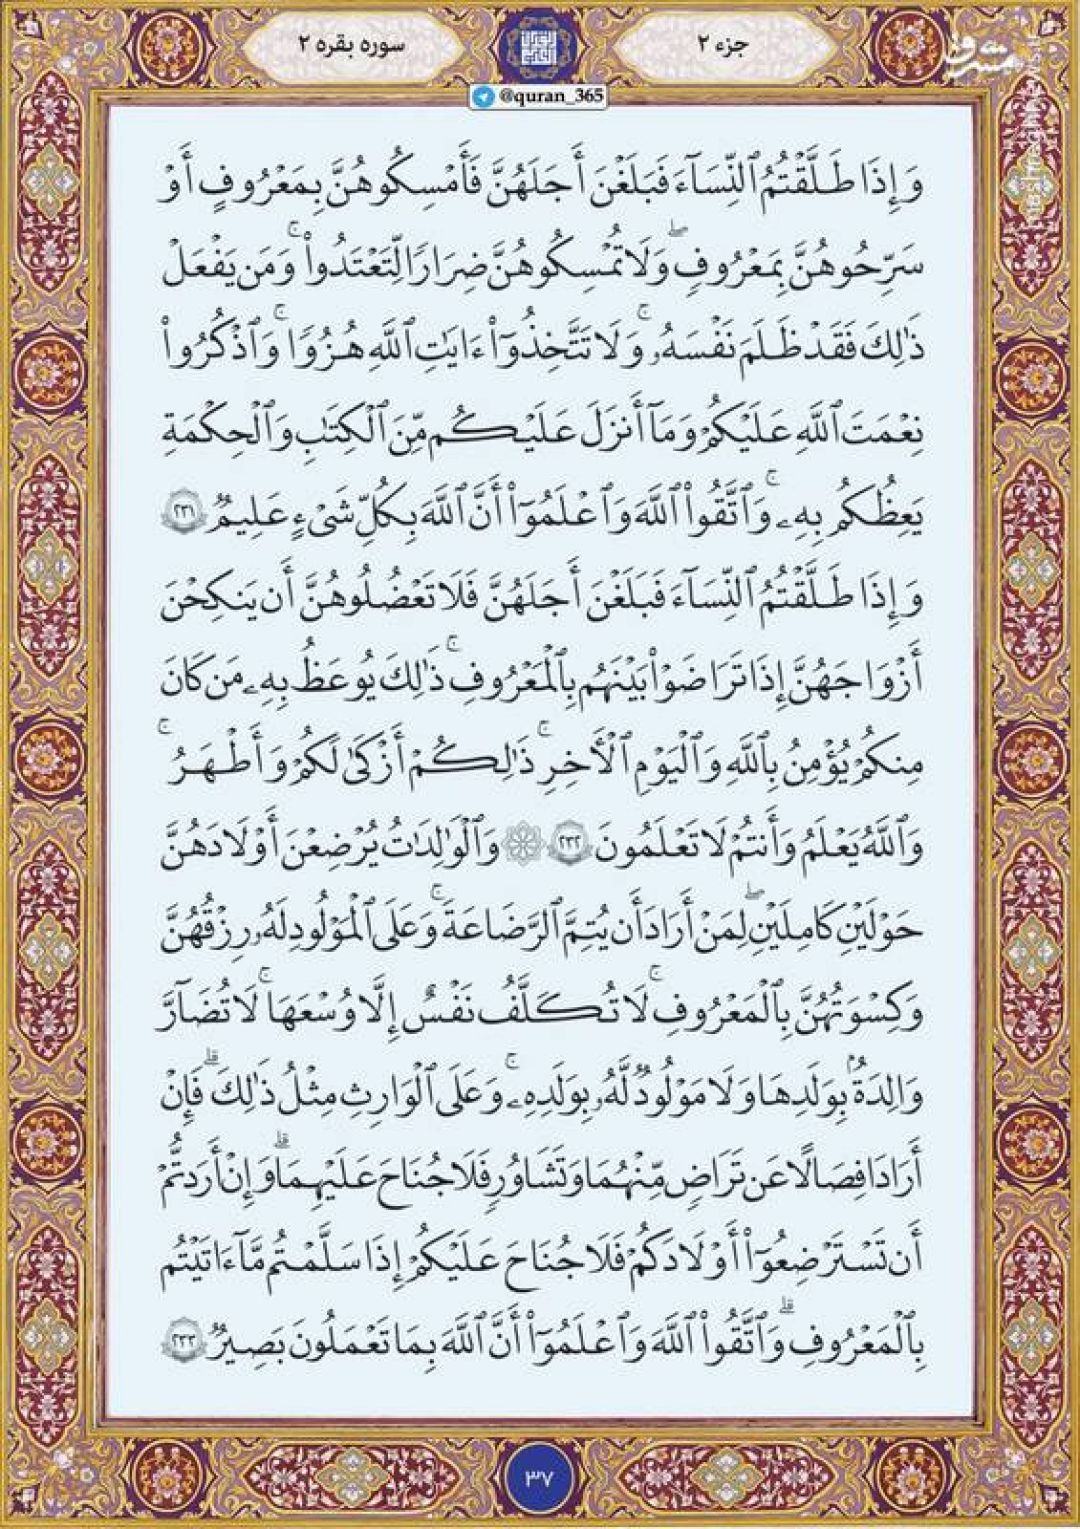 جزء ۲
سوره بقره ۲
مشرق
mashreghnews
@quran_365
وَإِذَا طَلَّقْتُمُ ٱلنِّسَآءَ فَبَلَغْنَ أَجَلَهُنَّ فَأَمْسِكُوهُنَّ بِمَعْرُوفٍ أَوْ
سَرِّحُوهُنَّ بِمَعْرُوفٍ ۖ وَلَا تُمْسِكُوهُنَّ ضِرَارًا لِّتَعْتَدُوا۟ ۚ وَمَن يَفْعَلْ
ذَٰلِكَ فَقَدْ ظَلَمَ نَفْسَهُۥ ۚ وَلَا تَتَّخِذُوٓا۟ ءَايَٰتِ ٱللَّهِ هُزُوًا ۚ وَٱذْكُرُوا۟
نِعْمَتَ ٱللَّهِ عَلَيْكُمْ وَمَآ أَنزَلَ عَلَيْكُم مِّنَ ٱلْكِتَٰبِ وَٱلْحِكْمَةِ
يَعِظُكُم بِهِۦ ۚ وَٱتَّقُوا۟ ٱللَّهَ وَٱعْلَمُوٓا۟ أَنَّ ٱللَّهَ بِكُلِّ شَىْءٍ عَلِيمٌ ۝٢٣١
وَإِذَا طَلَّقْتُمُ ٱلنِّسَآءَ فَبَلَغْنَ أَجَلَهُنَّ فَلَا تَعْضُلُوهُنَّ أَن يَنكِحْنَ
أَزْوَٰجَهُنَّ إِذَا تَرَٰضَوْا۟ بَيْنَهُم بِٱلْمَعْرُوفِ ۗ ذَٰلِكَ يُوعَظُ بِهِۦ مَن كَانَ
مِنكُمْ يُؤْمِنُ بِٱللَّهِ وَٱلْيَوْمِ ٱلْءَاخِرِ ۗ ذَٰلِكُمْ أَزْكَىٰ لَكُمْ وَأَطْهَرُ ۚ
وَٱللَّهُ يَعْلَمُ وَأَنتُمْ لَا تَعْلَمُونَ ۝٢٣٢ وَٱلْوَٰلِدَٰتُ يُرْضِعْنَ أَوْلَٰدَهُنَّ
حَوْلَيْنِ كَامِلَيْنِ ۖ لِمَنْ أَرَادَ أَن يُتِمَّ ٱلرَّضَاعَةَ ۚ وَعَلَى ٱلْمَوْلُودِ لَهُۥ رِزْقُهُنَّ
وَكِسْوَتُهُنَّ بِٱلْمَعْرُوفِ ۚ لَا تُكَلَّفُ نَفْسٌ إِلَّا وُسْعَهَا ۚ لَا تُضَآرَّ
وَٰلِدَةٌۢ بِوَلَدِهَا وَلَا مَوْلُودٌ لَّهُۥ بِوَلَدِهِۦ ۚ وَعَلَى ٱلْوَارِثِ مِثْلُ ذَٰلِكَ ۗ فَإِنْ
أَرَادَا فِصَالًا عَن تَرَاضٍ مِّنْهُمَا وَتَشَاوُرٍ فَلَا جُنَاحَ عَلَيْهِمَا ۗ وَإِنْ أَرَدتُّمْ
أَن تَسْتَرْضِعُوٓا۟ أَوْلَٰدَكُمْ فَلَا جُنَاحَ عَلَيْكُمْ إِذَا سَلَّمْتُم مَّآ ءَاتَيْتُم
بِٱلْمَعْرُوفِ ۗ وَٱتَّقُوا۟ ٱللَّهَ وَٱعْلَمُوٓا۟ أَنَّ ٱللَّهَ بِمَا تَعْمَلُونَ بَصِيرٌ ۝٢٣٣
۳۷